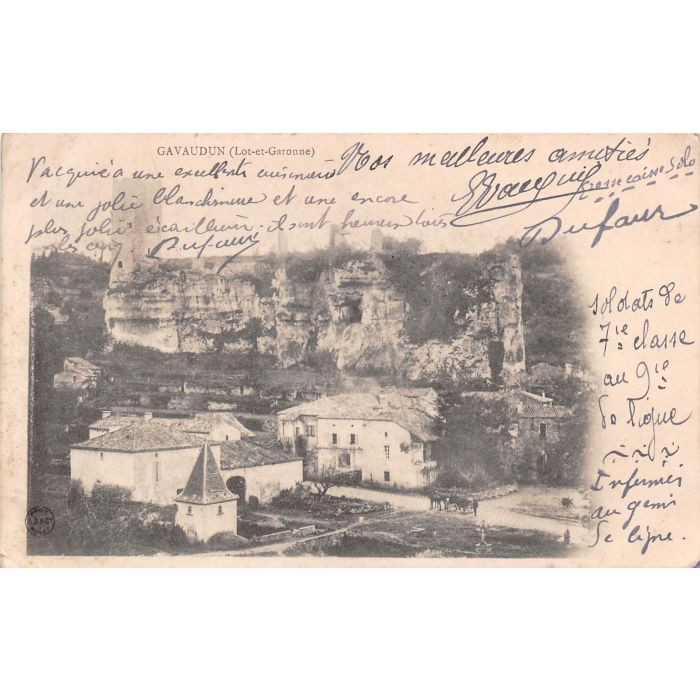 GAVAUDUN (Lot-et-Garonne)
Vacquié a une excellente cuisinière
et une jolie blanchisseuse et une encore
plus jolie écaillère. ils sont heureux tous
les cinq Dufaur
Nos meilleures amitiés
Vacquié
Dufaur
Soldats de
7ie classe
au 9ie
de ligne
Infirmiers
au 9emi
de ligne.